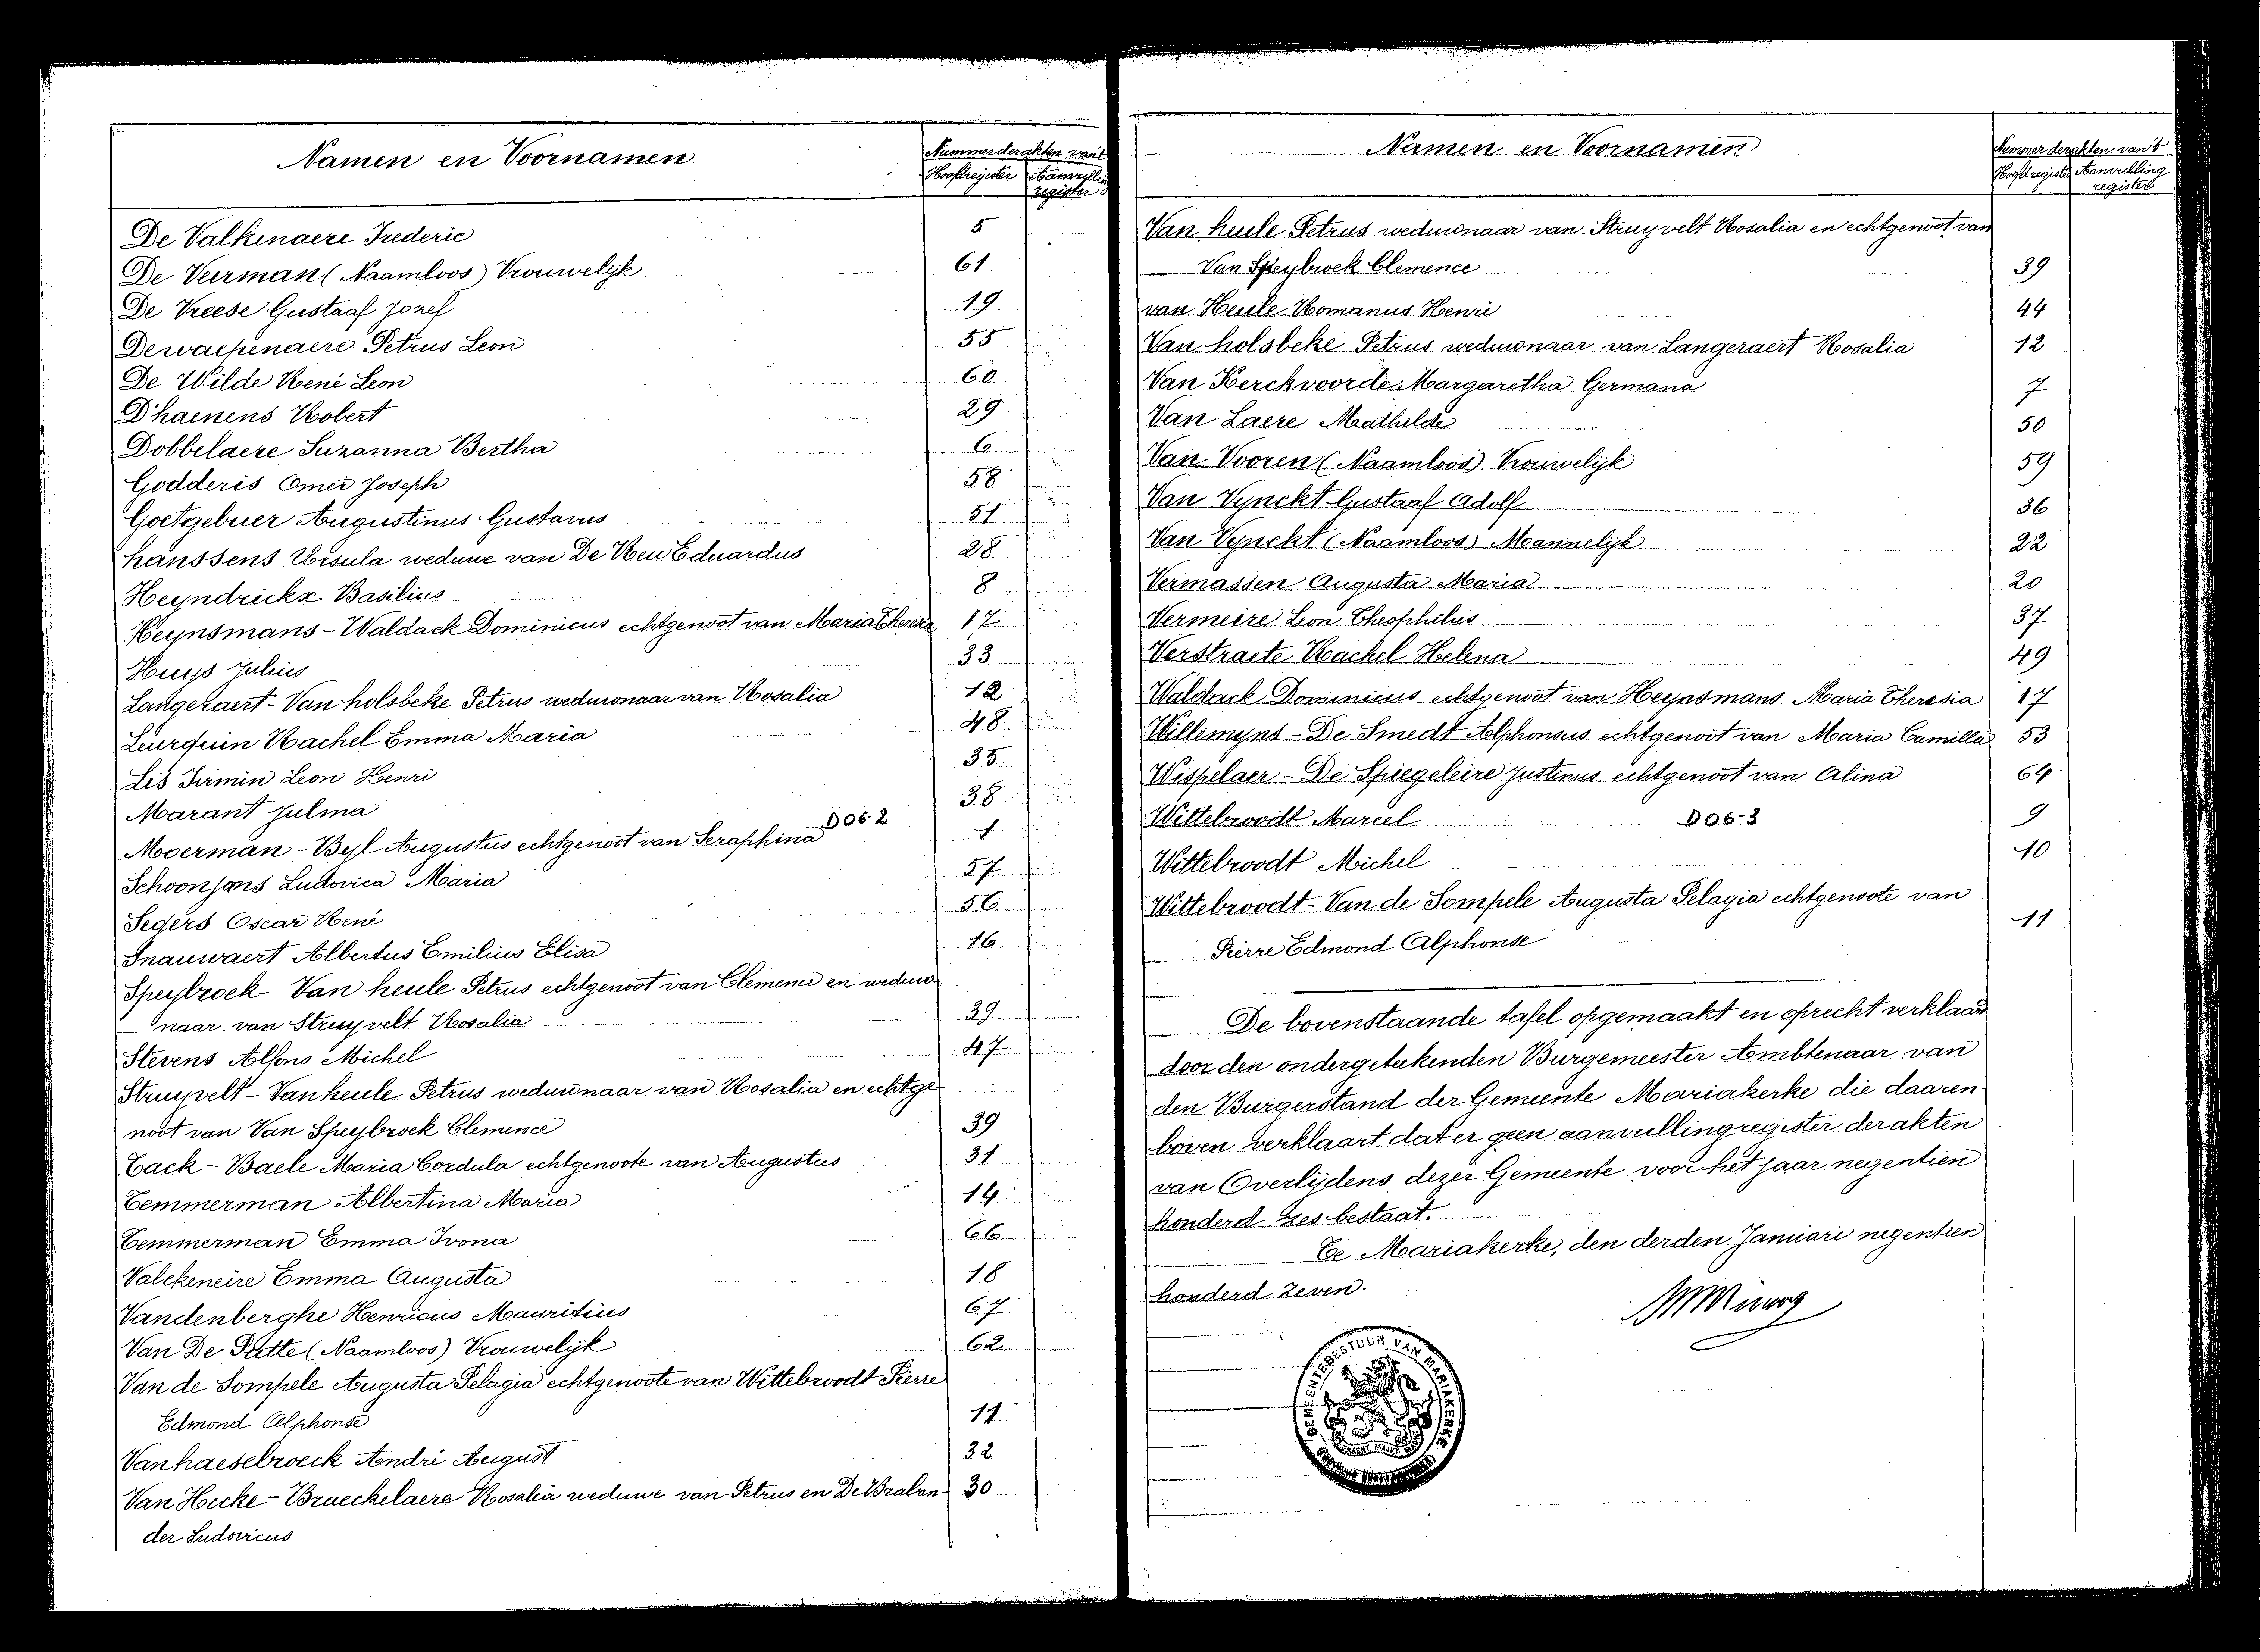 Namen en Voornamen
Nummer der akten van 't
Hoofdregister Aanvulling
register
De Valkenaere Frederic 5
De Veirman (Naamloos) Vrouwelijk 61
De Vreese Gustaaf Jozef 19
Dewaepenaere Petrus Leon 55
De Wilde René Leon 60
D'haenens Robert 29
Dobbelaere Suzanna Bertha 6
Godderis Omer Joseph 58
Goetgebuer Augustinus Gustavus 51
hanssens Ursula weduwe van De Neu Eduardus 28
Heyndrickx Basilius 8
Heynsmans - Waldack Dominicus echtgenoot van Maria Theresia 17
Huys Julius 33
Langeraert - Van holsbeke Petrus weduwnaar van Rosalia 12
Leurquin Rachel Emma Maria 48
Lis Firmin Leon Henri 35
Marant Julma 38
D06-2
Moerman - Byl Augustus echtgenoot van Seraphina 1
Schoonjans Ludovica Maria 57
Segers Oscar René 56
Snauwaert Albertus Emilius Elisa 16
Speybroek - Van heule Petrus echtgenoot van Clemence en weduw-
naar van Struyvelt Rosalia 39
Stevens Alfons Michel 47
Struyvelt - Van heule Petrus weduwnaar van Rosalia en echtge-
noot van Van Speybroek Clemence 39
Tack - Baele Maria Cordula echtgenoote van Augustus 31
Temmerman Albertina Maria 14
Temmerman Emma Ivona 66
Valckeneire Emma Augusta 18
Vandenberghe Henricus Mauritius 67
Van De Putte (Naamloos) Vrouwelijk 62
Van de Sompele Augusta Pelagia echtgenoote van Wittebroodt Pierre
Edmond Alphonse 11
Van haesebroeck André August 32
Van Hecke - Braeckelaere Rosalia weduwe van Petrus en De Braban- 30
der Ludovicus
Namen en Voornamen
Nummer der akten van 't
Hoofdregister Aanvulling
register
Van heule Petrus weduwnaar van Struyvelt Rosalia en echtgenoot van
Van Speybroek Clemence 39
van Heule Romanus Henri 44
Van holsbeke Petrus weduwnaar van Langeraert Rosalia 12
Van Kerckvoorde Margaretha Germana 7
Van Laere Mathilde 50
Van Vooren (Naamloos) Vrouwelijk 59
Van Vynckt Gustaaf Adolf 36
Van Vynckt (Naamloos) Mannelijk 22
Vermassen Augusta Maria 20
Vermeire Leon Theophilus 37
Verstraete Rachel Helena 49
Waldack Dominicus echtgenoot van Heynsmans Maria Theresia 17
Willemyns - De Smedt Alphonsus echtgenoot van Maria Camilla 53
Wispelaer - De Spiegeleire Justinus echtgenoot van Alina 64
Wittebroodt Marcel D06-3 9
Wittebroodt Michel 10
Wittebroodt - Van de Sompele Augusta Pelagia echtgenoote van
Pierre Edmond Alphonse 11
De bovenstaande tafel opgemaakt en oprecht verklaard
door den ondergeteekenden Burgemeester Ambtenaar van
den Burgerstand der Gemeente Mariakerke die daaren-
boven verklaart dat er geen aanvullingregister der akten
van Overlijdens dezer Gemeente voor het jaar negentien
honderd zes bestaat.
Te Mariakerke, den derden Januari negentien
honderd zeven.
GEMEENTEBESTUUR VAN MARIAKERKE